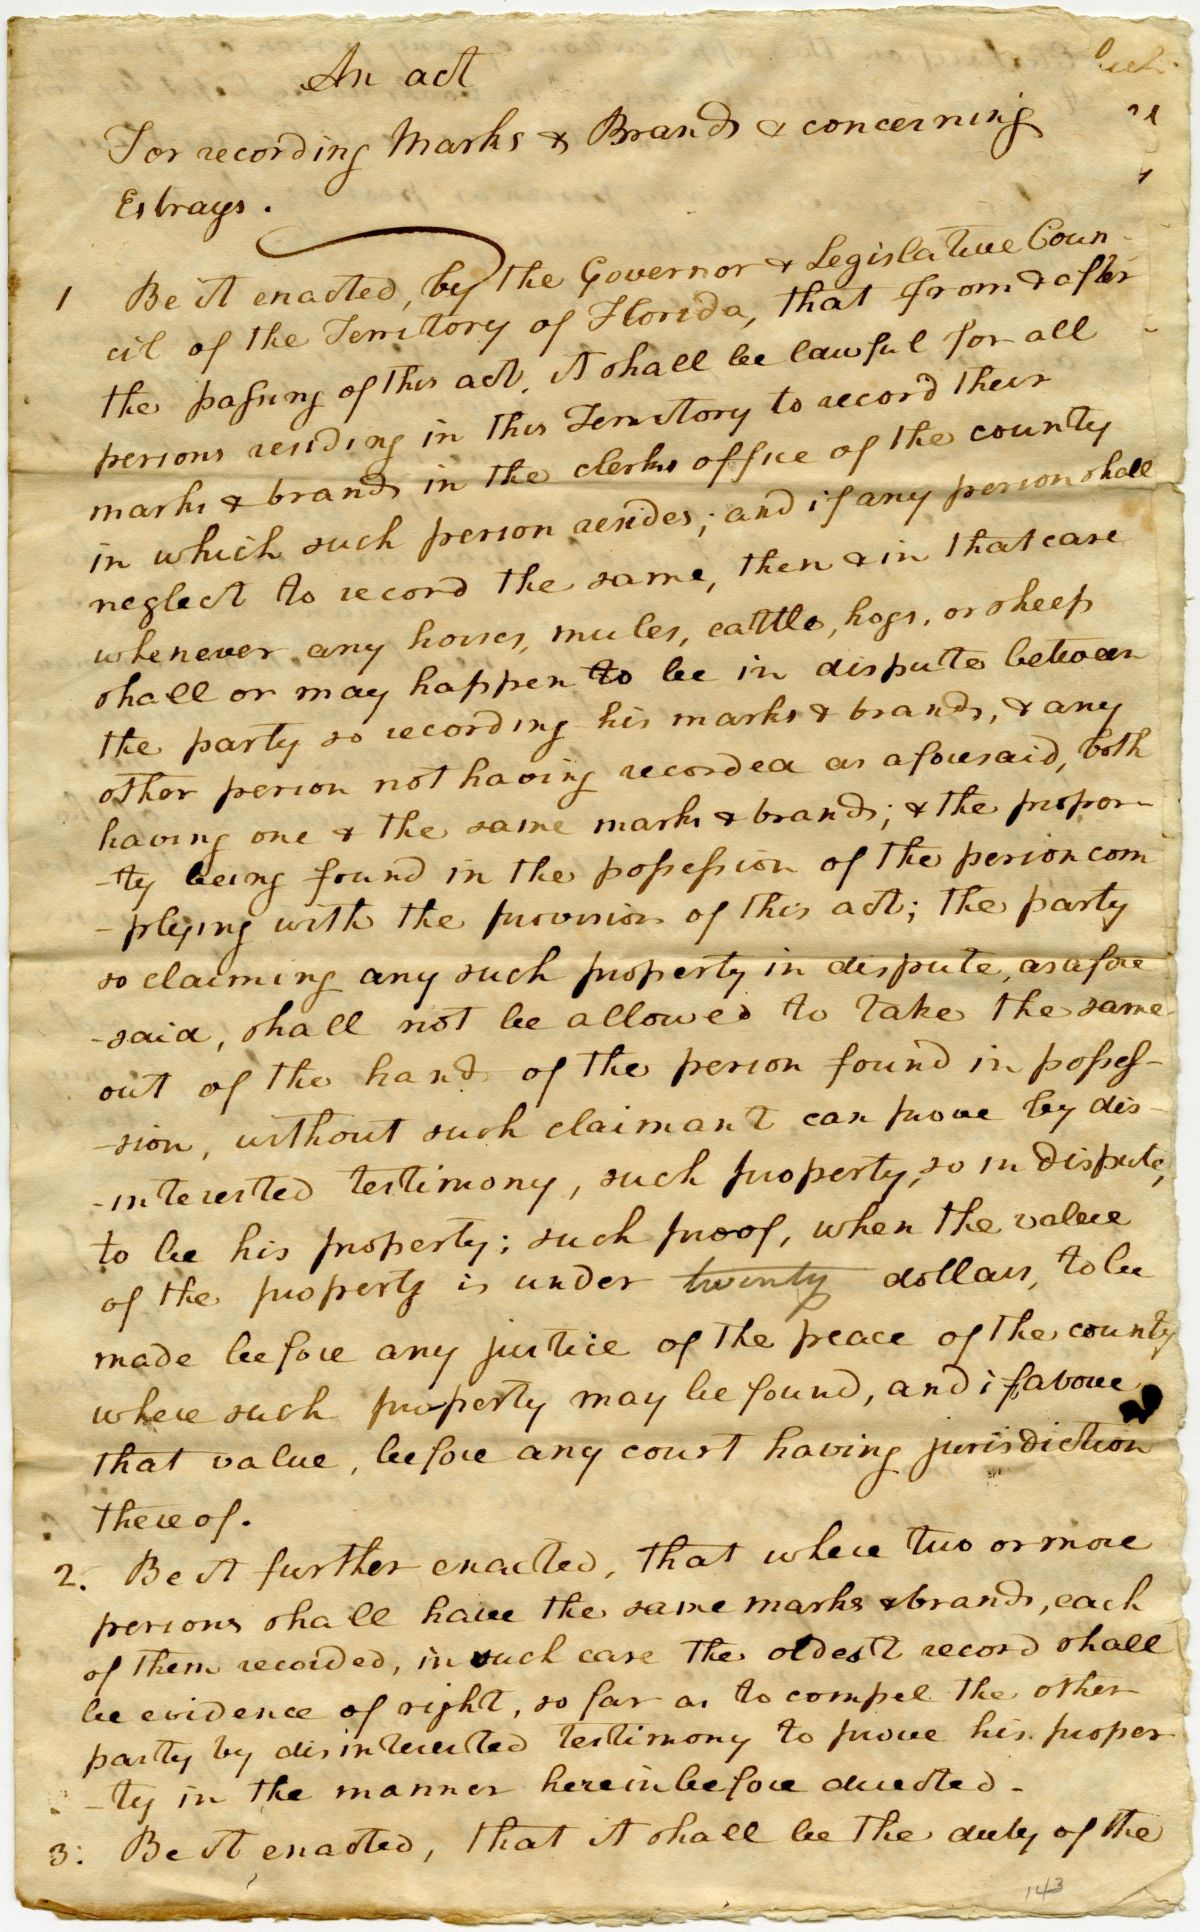 An act
For recording Marks & Brands & concerning
Estrays.
1 Be it enacted, by the Governor & Legislative Coun-
cil of the Territory of Florida, that from & after
the passing of this act, it shall be lawful for all
persons residing in this Territory to record their
marks & brands in the clerks office of the county
in which such person resides; and if any person shall
neglect to record the same, then & in that case
whenever any horses, mules, cattle, hogs, or sheep
shall or may happen to be in dispute between
the party so recording his marks & brands, & any
other person not having recorded as aforesaid, both
having one & the same marks & brands; & the proper-
-ty being found in the possession of the person com
-plying with the provision of this act; the party
so claiming any such property in dispute, as afore
-said, shall not be allowed to take the same
out of the hands of the person found in posses-
-sion, without such claimant can prove by dis-
-interested testimony, such property, so in dispute,
to be his property; such proof, when the value
of the property is under twenty dollars, to be
made before any justice of the peace of the county
where such property may be found, and if above
that value, before any court having jurisdiction
thereof.
2. Be it further enacted, that where two or more
persons shall have the same marks & brands, each
of them recorded, in such case the oldest record shall
be evidence of right, so far as to compel the other
party by disinterested testimony to prove his proper-
-ty in the manner herein before directed.
3. Be it enacted, that it shall be the duty of the
143